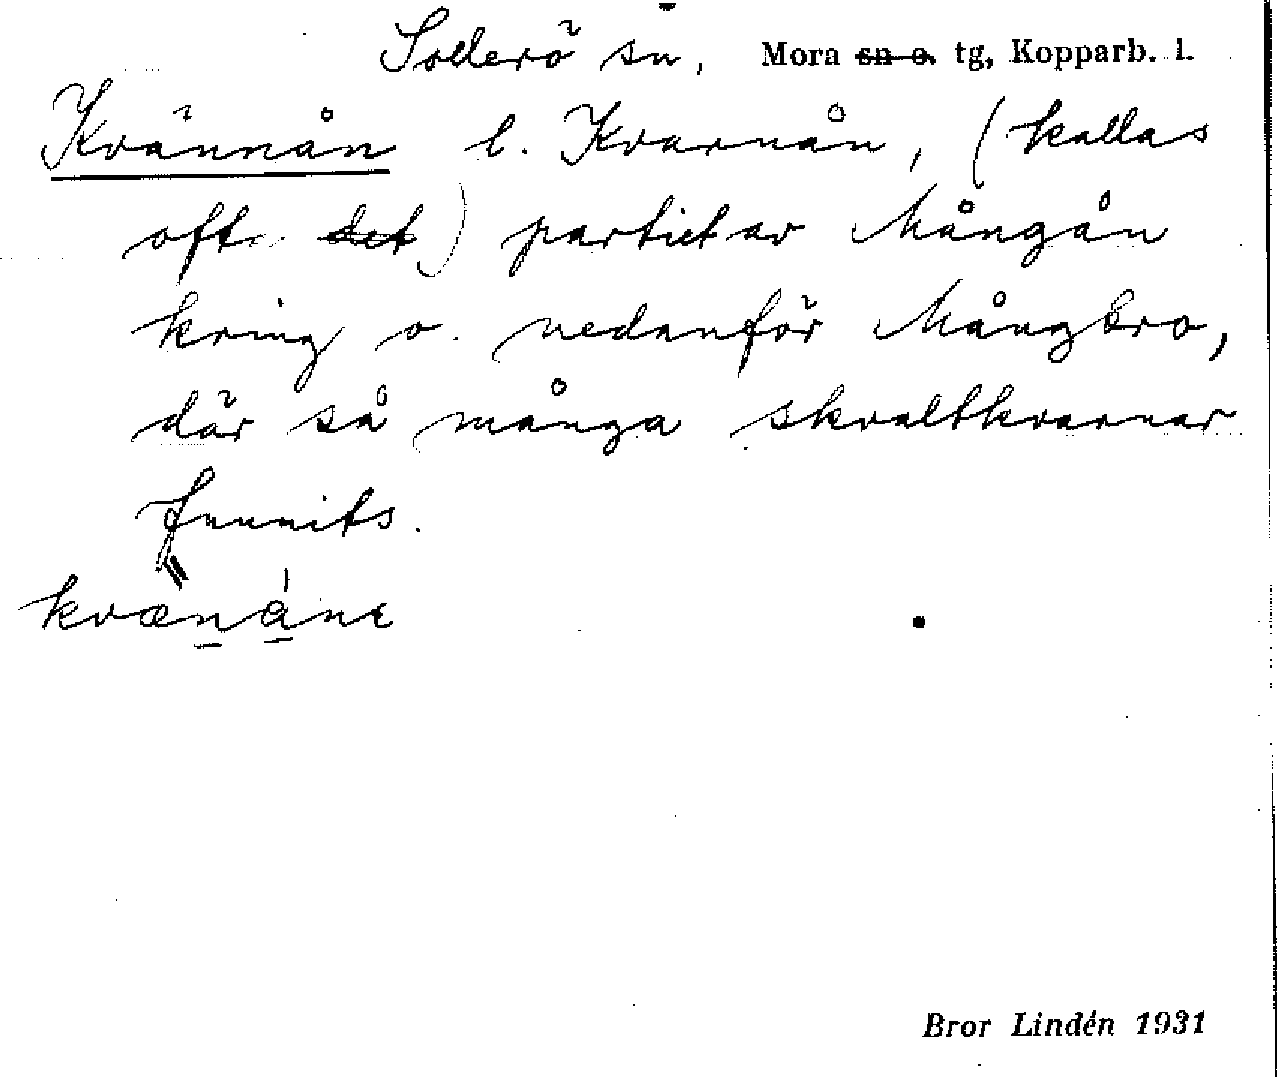 Sollerö sn, Mora sn o. tg, Kopparb. l.
Kvännån l. Kvarnån, (kallas
ofta det) partiet av Mångån
kring o. nedanför Mångbro,
där så många skvaltkvarnar
funnits.
kvænåne
Bror Lindén 1931